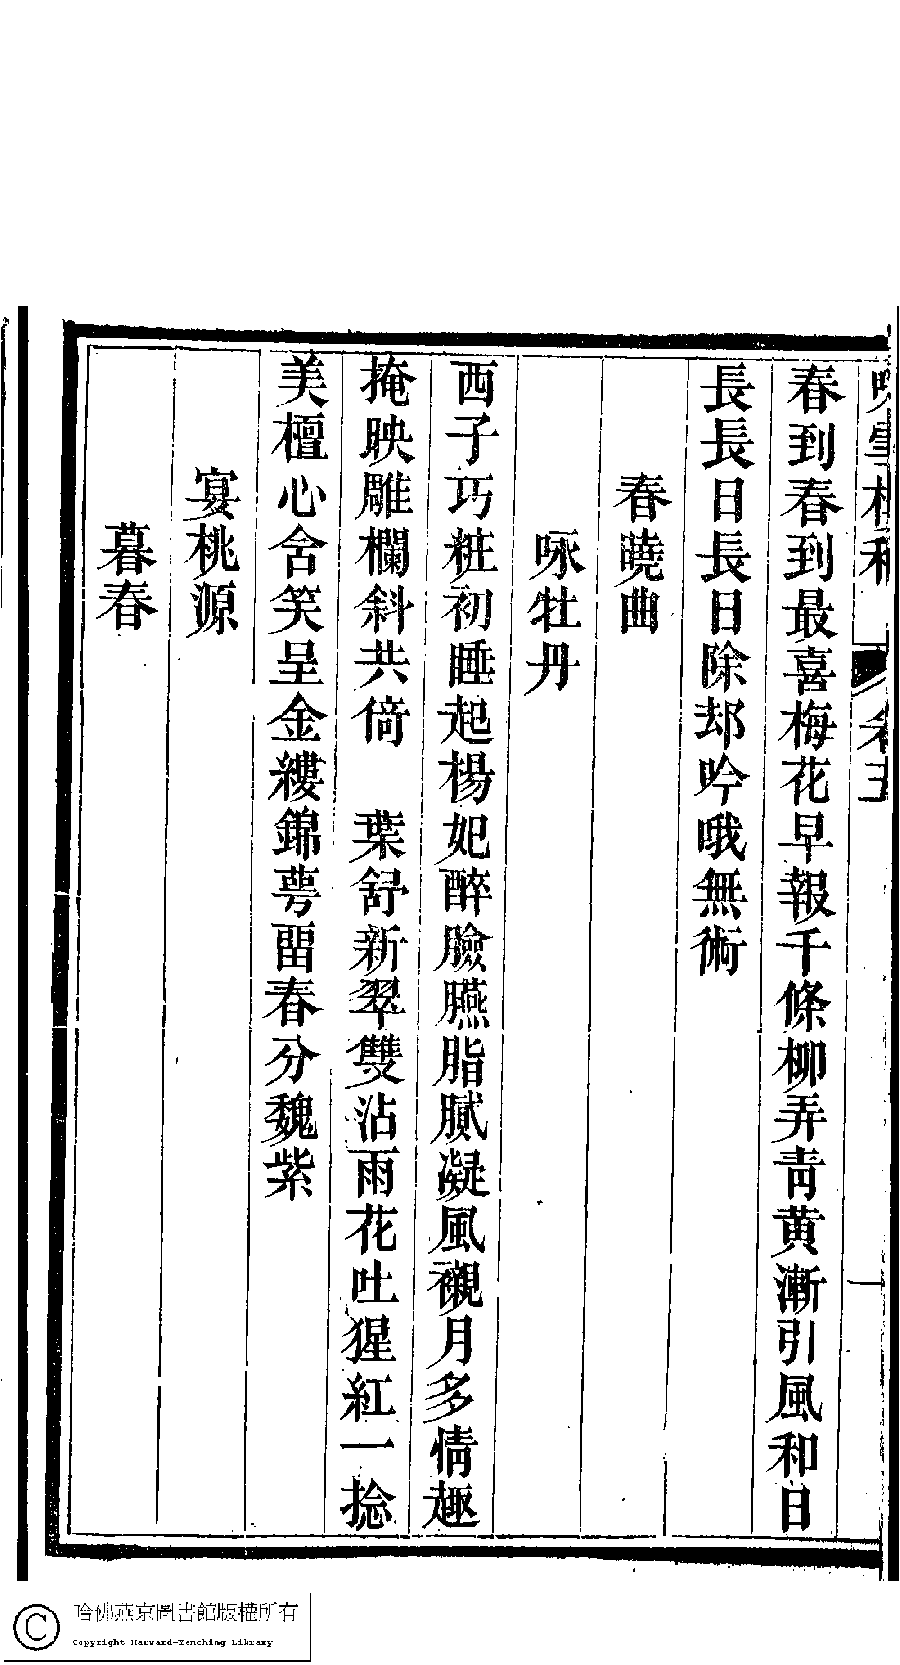 春到春到最喜梅花早報千條柳弄青黄漸引風和日
長長日長日除却吟哦無術
春曉曲
咏牡丹
西子巧粧初睡起楊妃醉臉臙脂膩凝風襯月多情趣
掩映雕欄斜共倚　葉舒新翠雙沾雨花吐猩紅一捻
美檀心含笑呈金縷錦萼畱春分魏紫
宴桃源
暮春
哈佛燕京圖書館版權所有
Copyright Harvard-Yenching Library